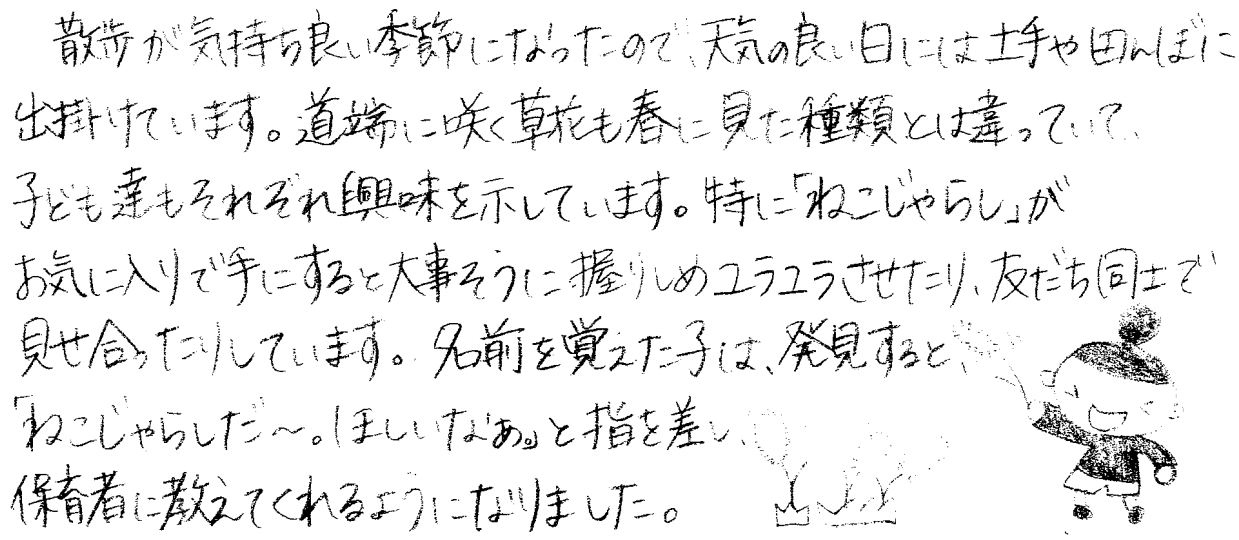 散歩が気持ち良い季節になったので、天気の良い日には土手や田んぼに
出掛けています。道端に咲く草花も春に見た種類とは違っていて、
子ども達もそれぞれ興味を示しています。特に「ねこじゃらし」が
お気に入りで手にすると大事そうに握りしめユラユラさせたり、友だち同士で
見せ合ったりしています。名前を覚えた子は、発見すると、
「ねこじゃらしだ～。ほしいなぁ。」と指を差し、
保育者に教えてくれるようになりました。